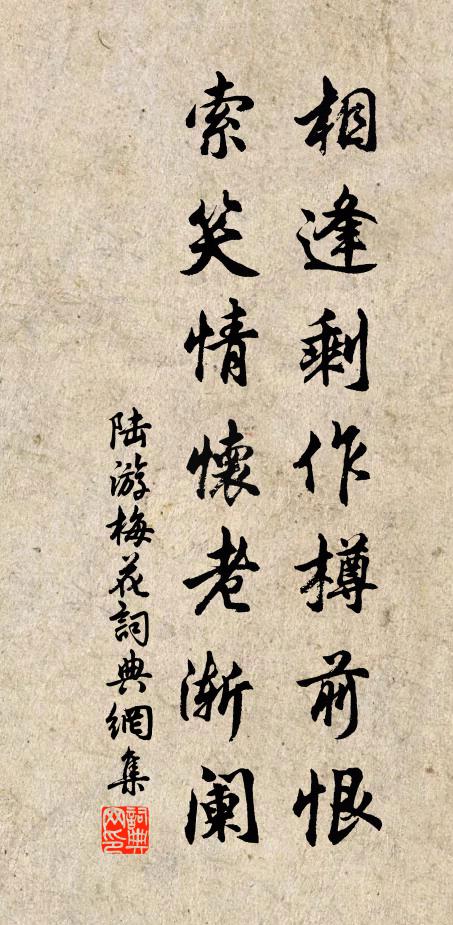 相逢剩作樽前恨
索笑情懷老渐阑
陆游梅花詞典網集
詞典网印